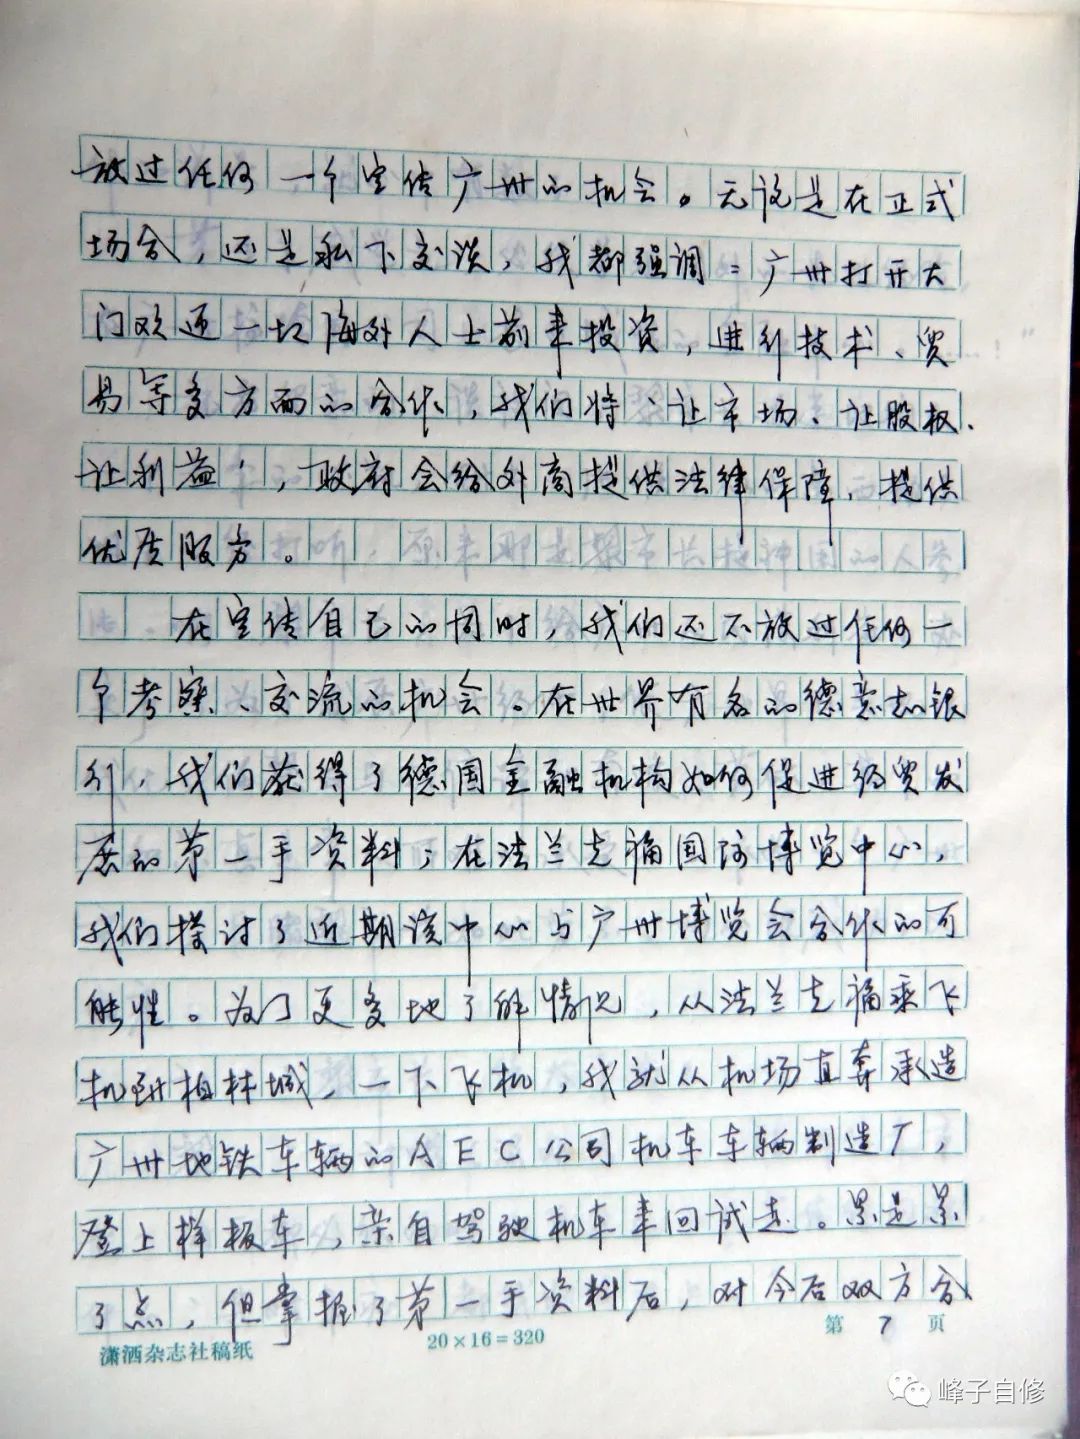 放过任何一个宣传广州的机会。无论是在正式
场合，还是私下交谈，我都强调：广州打开大
门欢迎一切海外人士前来投资，进行技术、贸
易等多方面的合作，我们将“让市场、让股权、
让利益”，政府会给外商提供法律保障，提供
优质服务。
在宣传自己的同时，我们还不放过任何一
个考察、交流的机会。在世界有名的德意志银
行，我们获得了德国金融机构如何促进经贸发
展的第一手资料；在法兰克福国际博览中心，
我们探讨了近期该中心与广州博览会合作的可
能性。为了更多地了解情况，从法兰克福乘飞
机到柏林城，一下飞机，我就从机场直奔承造
广州地铁车辆的AEC公司机车车辆制造厂，
登上样板车，亲自驾驶机车来回试走。累是累
了点，但掌握了第一手资料后，对今后双方合
潇洒杂志社稿纸 20×16=320 第 7 页
峰子自修